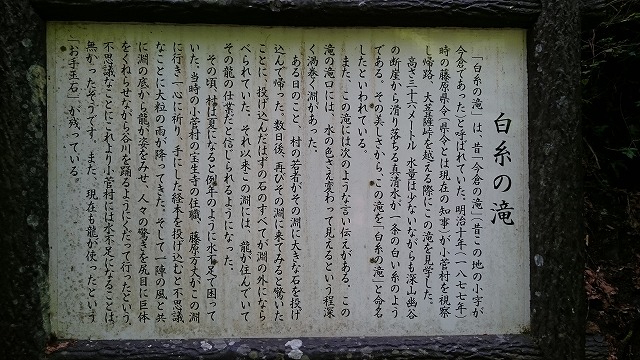 白糸の滝
「白糸の滝」は、昔「今倉の滝」(昔この地の小字が
今倉であった)と呼ばれていた。明治十年(一八七七年)
時の藤原県令(県令とは現在の知事)が小菅村を視察
し帰路、大菩薩峠を越える際にこの滝を見学した。
高さ三十六メートル 水量は少ないながらも深山幽谷
の断崖から滑り落ちる真清水が一条の白い糸のよう
である。その美しさから、この滝を「白糸の滝」と命名
したといわれている。
また、この滝には次のような言い伝えがある。この
滝の滝口には、水の色さえ変わって見えるという程深
く渦巻く淵があった。
ある日のこと、村の若者がその淵に大きな石を投げ
込んで帰った。数日後、再びその淵に来てみると驚いた
ことに、投げ込んだはずの石のすべてが淵の外になら
べられていた。それ以来この淵には、龍が住んでいて
その龍の仕業だと信じられるようになった。
その頃、村は夏になると例年のように水不足で困って
いた。当時の小菅村の宝生寺の住職、藤原方丈がこの淵
に行き一心に祈り、手にした経本を投げ込むと不思議
なことに大粒の雨が降ってきた。そして一陣の風と共
に淵の底から龍が姿をみせ、人々の驚きを尻目に巨体
をくねらせながら谷川を踊るようにくだって行ったという。
不思議なことにこれより小菅村には水不足になることは、
無かったそうです。また、現在も龍が使ったという
「お手玉石」が残っている。